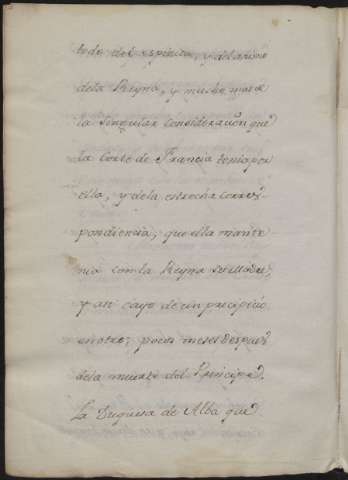 todo del espiritu, y del animo
dela Reyna, y mucho mas de
la singular consideracion que
la Corte de Francia tenia por
ella, y dela estrecha corres-
pondiencia, que ella mante
nia con la Reyna su Madre,
y asi cayo de un precipicio
en otro; pocos meses despues
dela muerte del Principe.
La Duquesa de Alba que